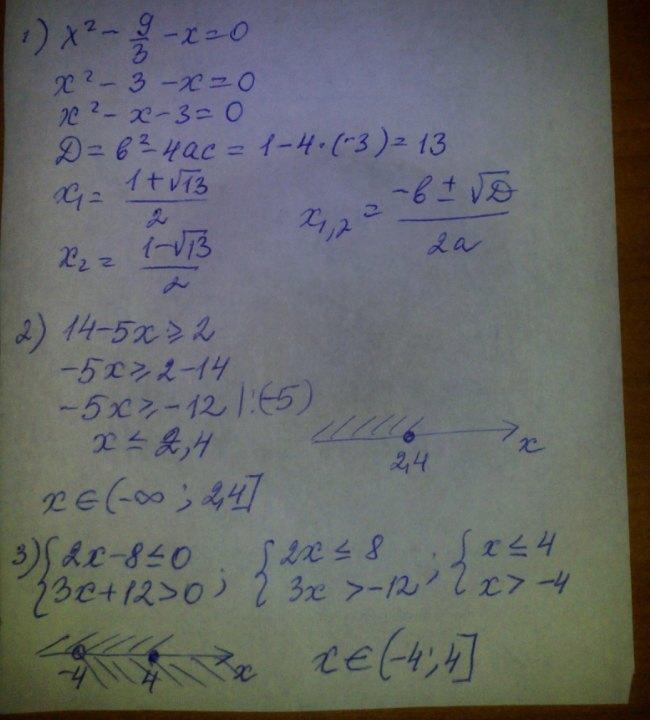 1) x² - 9/3 - x = 0
x² - 3 - x = 0
x² - x - 3 = 0
D = b² - 4ac = 1 - 4·(-3) = 13
x₁ = (1+√13)/2
x₁,₂ = (-b ± √D)/2a
x₂ = (1-√13)/2
2) 14 - 5x ≥ 2
-5x ≥ 2 - 14
-5x ≥ -12 |:(-5)
x ≤ 2,4
2,4 x
x ∈ (-∞; 2,4]
3) {2x - 8 ≤ 0; {2x ≤ 8; {x ≤ 4
{3x + 12 > 0; {3x > -12; {x > -4
-4 4 x
x ∈ (-4; 4]